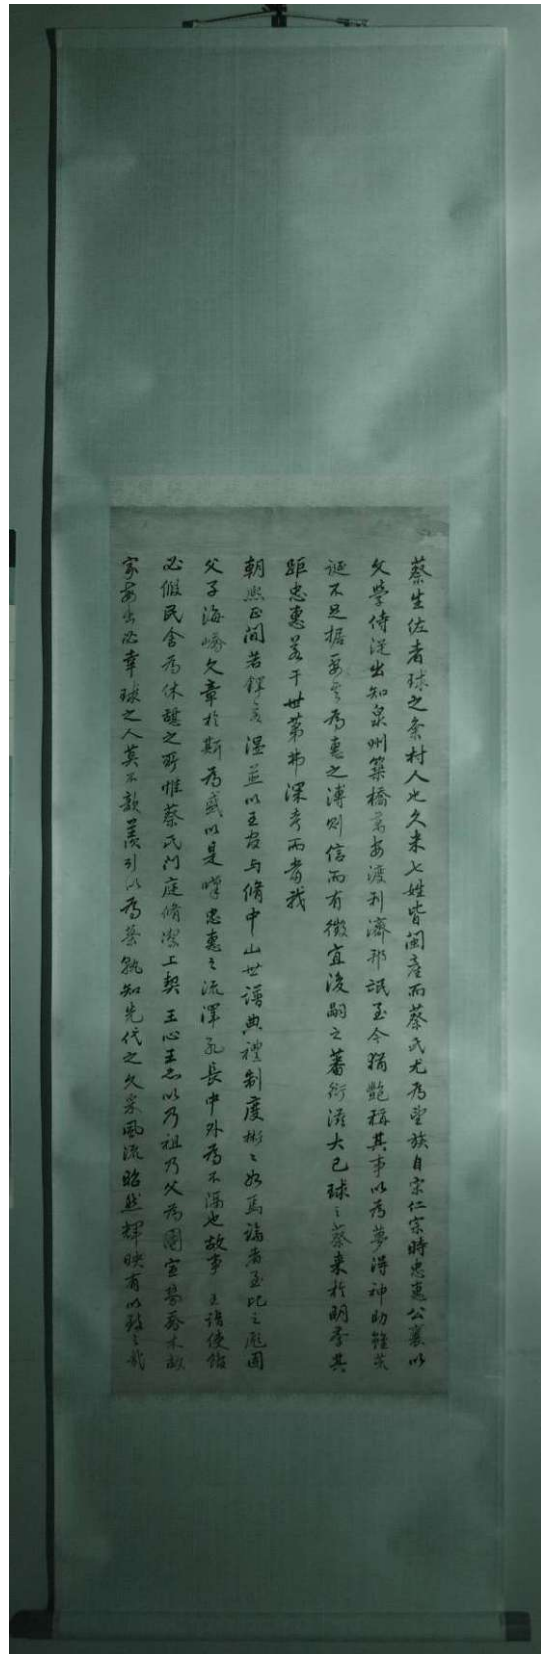 蔡生佐者球之条村人也久米七姓皆閩產而蔡氏尤為望族自宋仁宗時忠惠公襄以
文學侍從出知泉州築橋萬安渡利濟邦氓至今猶艷稱其事以為夢得神助雖荒
誕不足據要之為惠之溥則信而有徵宜後嗣之蕃衍滋大已球之蔡來於明季其
距忠惠若干世第弗深考而者我
朝熙正間若鐸若溫並以王官与脩中山世譜典禮制度彬彬如焉論者至比之彪固
父子海嶠文章於斯為盛以是嘆忠惠之流澤孔長中外為不隔也故事 王詣使館
必假民舍為休憩之所惟蔡氏門庭脩潔上契 王心王念以乃祖乃父為國宣勞喬木故
家每出必幸球之人莫不歆羨引以為榮孰知先代之文采風流昭然輝映有以致之哉